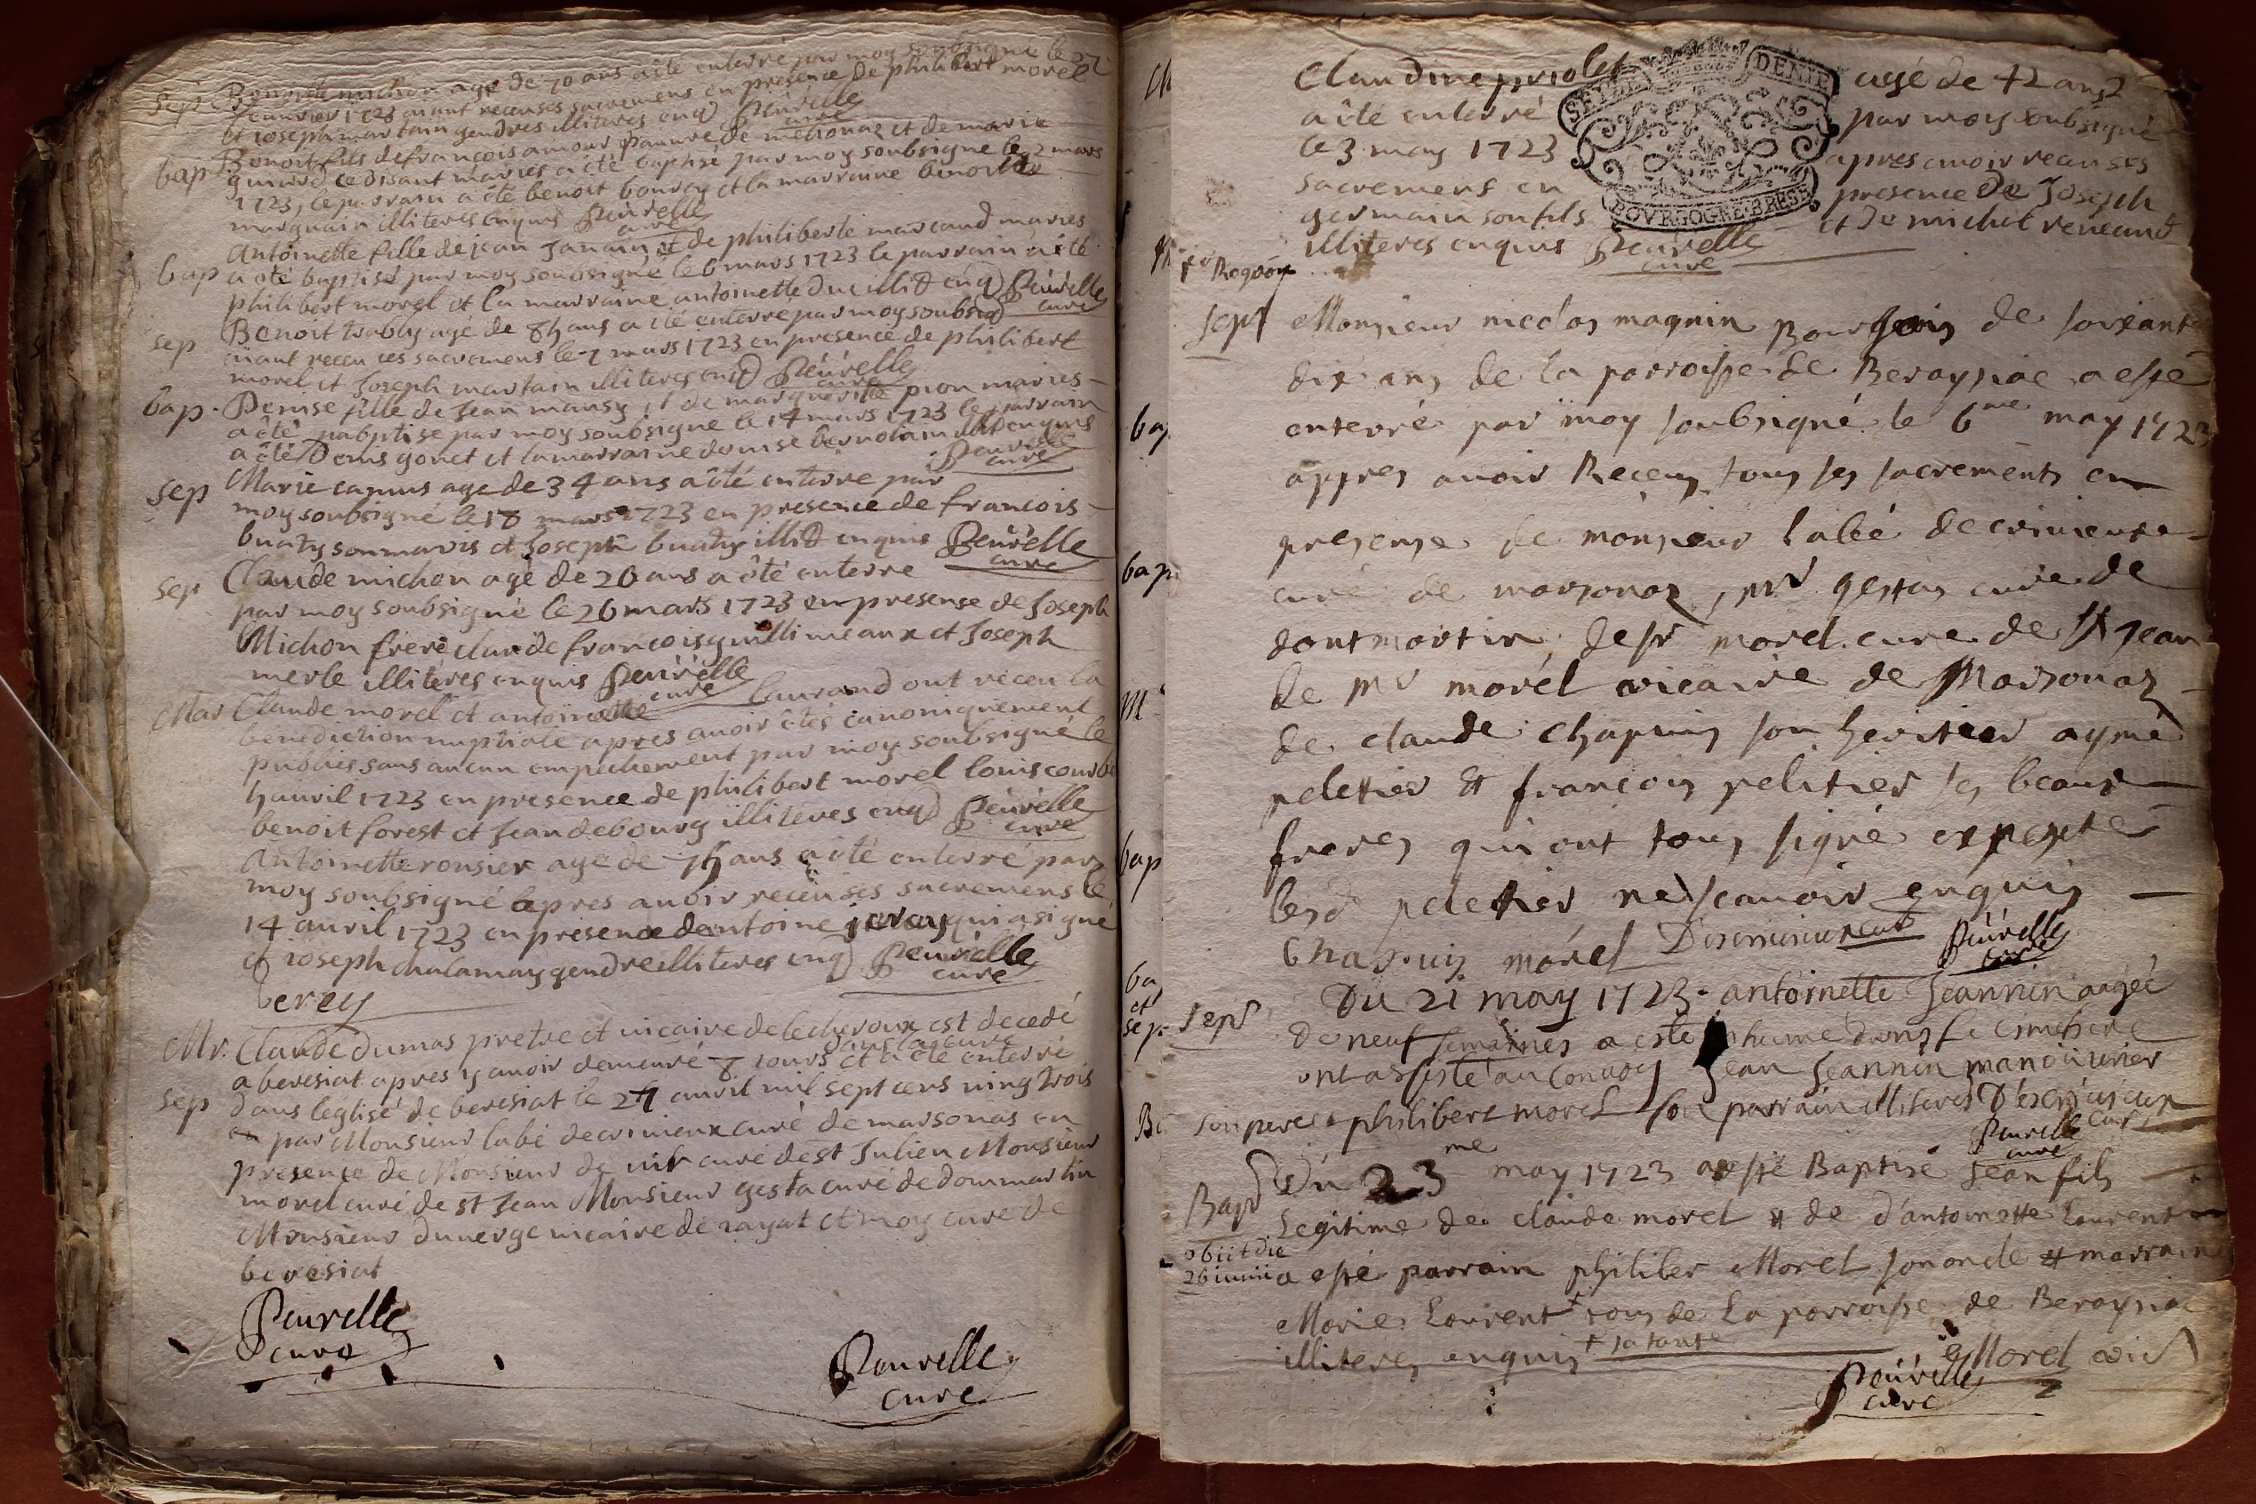 sep Benoite michon age de 70 ans a été enterré par moy soubsigné le 27
feuvrier 1723 aiant receu ses sacremens en presence de philibert morel
et ioseph martain gendres illiteres enq Peuvelle
cure
bap Benoit fils de francois amour pauvre de et de marie
ce disant mariés a été baptise par moy soubsigné le 2 mars
1723, le parrain a été benoit bourcy et la marraine benoite
illiteres enquis Peuvelle
cure
Antoinette fille de jean Janain et de philiberte marcand mariés
bap a été baptisé par moy soubsigné le 6 mars 1723 le parrain a été
philibert morel et la marraine antoinette enq Peuvelle
cure
sep Benoit trably agé de 8h ans a été enterre par moy soubsig
aiant receu ces sacremens le 7 mars 1723 en presence de philibert
morel et Joseph martain illiteres enq Peuvelle
cure
bap. Denise fille de Jean et de marguerite pion mariés
a été papptise par moy soubsigne le 14 mars 1723 le parrain
a été Denis gonet et la marraine denise enquis
Peuvelle
cure
sep Marie camus age de 34 ans a été enterre par
moy soubsigné le 18 mars 1723 en presence de francois
buathy son maris et Joseph buathy illit enquis Peuvelle
cure
sep Claude michon agé de 26 ans a été enterre
par moy soubsigné le 26 mars 1723 en presense de Joseph
Michon frere claude francois et Joseph
merle illitéres enquis Peuvelle
cure
Mar Claude morel et antoinette laurand ont receu la
benediction nuptiale apres avoir étés canoniquement
publiés sans aucun empechement par moy soubsigné le
h avril 1723 en presence de philibert morel louis
benoit forest et Jean debourg illiteres enq Peuvelle
cure
Antoinette rousier age de 7h ans a été enterré par
moy soubsigné apres avoir receu ses sacremens le
14 avril 1723 en presence dantoine qui a signé
et ioseph chalamay gendre illiteres enq Peuvelle
cure
Mr. Claude dumas pretre et vicaire de lecheroux est decedé
dans la cure
a beresiat apres y avoir demeuré 8 iours et a été enterré
sep dans léglise de beresiat le 27 avril mil sept cens ving trois
par Monsieur labé decrimieux curé de marsonas en
presence de Monsieur de curé de st Julien Monsieur
morel curé de st Jean Monsieur gesta curé de dommartin
Monsieur duverge vicaire de rayat et moy curé de
beresiat
Peuvelle
cure
Peuvelle
cure
Claudine priolet agé de 42 ans
a été enterré par moy soubsigné
le 3 may 1723 apres avoir receu ses
sacremens en presence de Joseph
germain son fils et de michel reveand
illiteres enquis Peuvelle
cure
DENIE
BOVRGOGNE·BRESSE
sept Monsieur nicolas magnin Bourgois de soixante
dix ans de la parroisse de Beraysiac a esté
enterré par moy soubsigné le 6me may 1723
appres avoir Receu tous ses sacrements en
presense de monsieur labé de crimieux
curé de marsonaz, mr gestas curé de
dontmartin, de sr morel cure de st Jean
de mr morel vicaire de Marsonaz
de claude chapuis son heritier aymé
peletier et francois peletier ses beaux
freres qui ont tous signé excepté
lesd peletier ne scavoir enquis
Chapuis morel Decrimieux cur Peuvelle
cure
sepr Du 21 may 1723. antoinette Jeannin aagée
de neuf semaines a este inhumé dans le cimetiere
ont assisté au convoy Jean Jeannin manouvrier
son pere philibert morel son parrain illiteres Décrimieux
cur
Peuvelle
cure
Bapt Du 23me may 1723 a esté Baptisé Jean fils
Legitime de claude morel et de d'antoinette Laurent
obiit die
26 iunii a esté parrain philiber Morel son oncle et marraine
Marie Laurent + tous de la parroisse de Beraysiac
illiteres enquis + sa tante
Morel vic
Peuvelle
cure